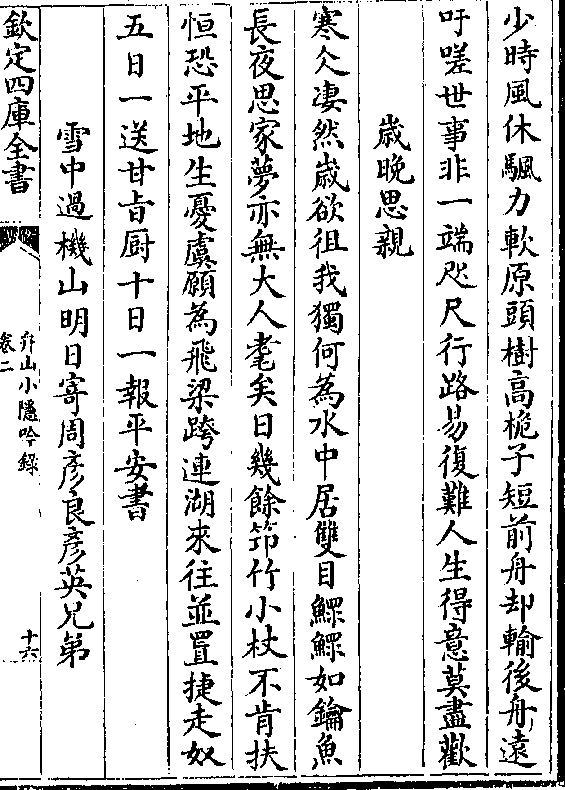 少時風休颿力軟原頭樹高桅子短前舟却輸後舟遠
吁嗟世事非一端咫尺行路易復難人生得意莫盡歡
歲晚思親
寒仌凄然歲欲徂我獨何為水中居雙目鰥鰥如鑰魚
長夜思家夢亦無大人耄矣日幾餘笻竹小杖不肯扶
恒恐平地生憂虞願為飛梁跨連湖來往並置捷走奴
五日一送甘旨厨十日一報平安書
雪中過機山明日寄周彦良彦英兄弟
欽定四庫全書
山小隱吟錄
卷二
十六